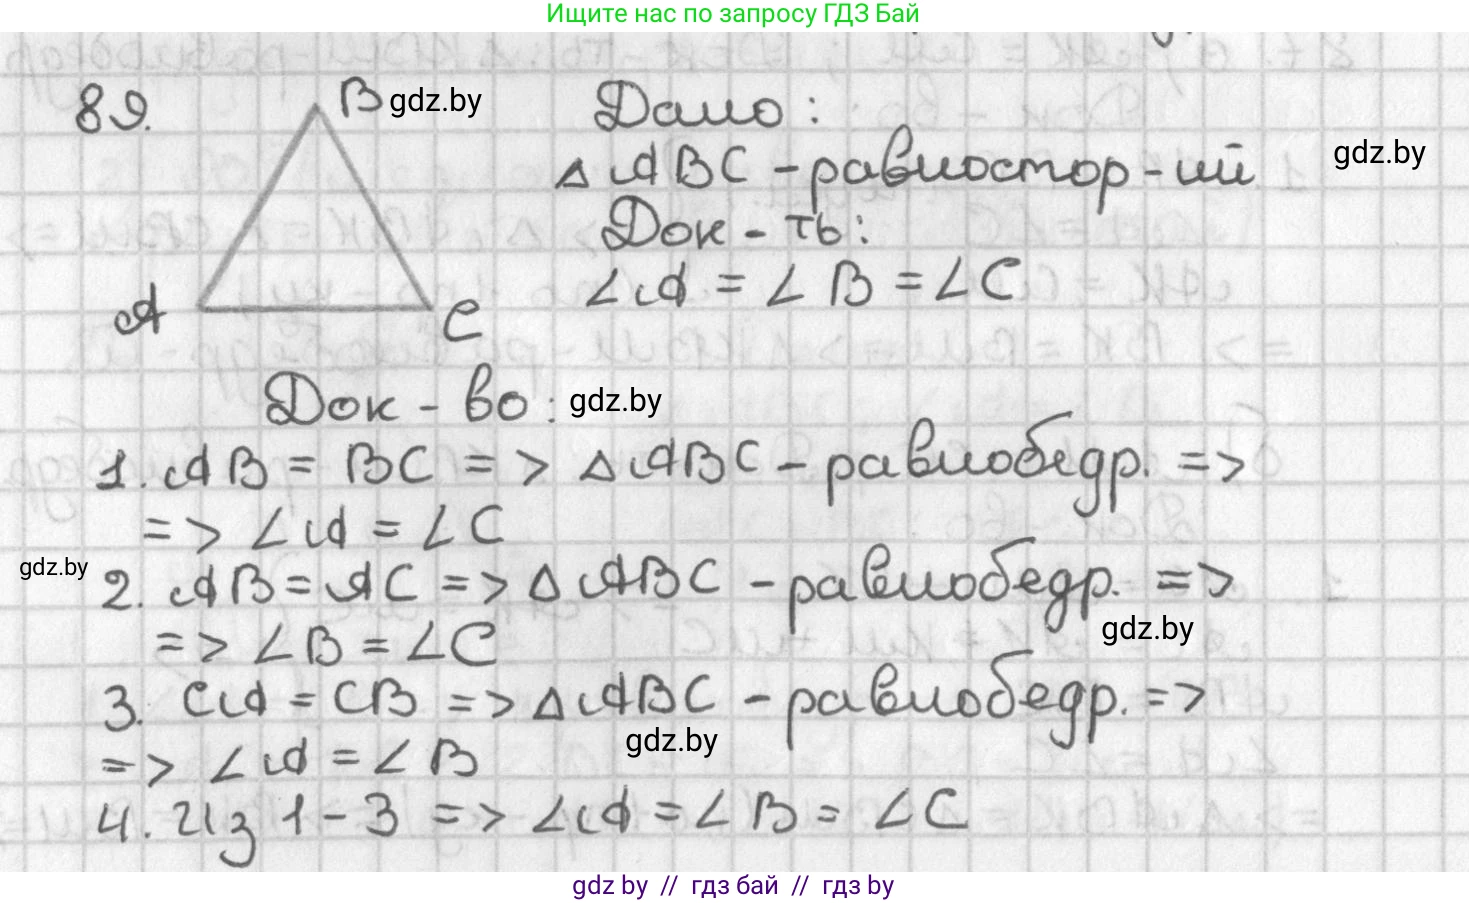 Ищите нас по запросу ГДЗ Бай
89.
B
gdz.by
Дано:
gdz.by
△ABC - равностор-ий
Док-ть:
∠A = ∠B = ∠C
A
C
Док-во:
gdz.by
1. AB = BC => △ABC - равнобедр. =>
=> ∠A = ∠C
gdz.by
2. AB = AC => △ABC - равнобедр. =>
gdz.by
=> ∠B = ∠C
3. CA = CB => △ABC - равнобедр. =>
gdz.by
=> ∠A = ∠B
4. Из 1-3 => ∠A = ∠B = ∠C
gdz by // гдз бай // гдз by